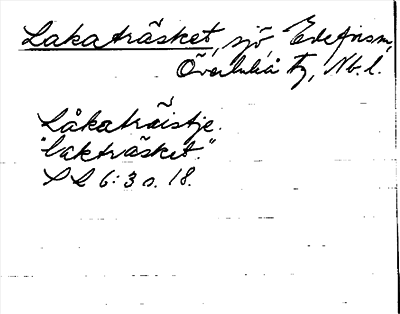 Lakaträsket, sjö, Edefors sn,
Överluleå tg, Nb. l.
Låkaträistje.
"Lakträsket."
SL 6:3 s. 18.